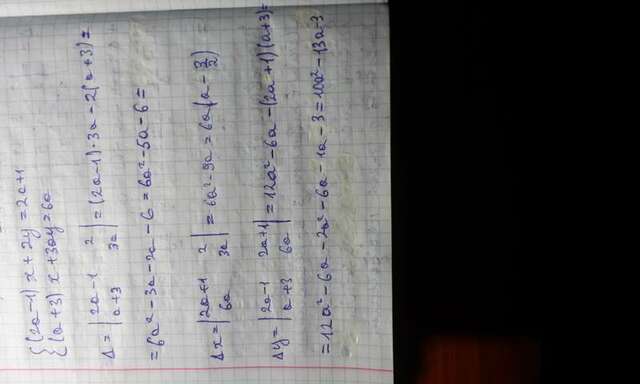 {(2a-1)x+2y=2a+1
{(a+3)x+3ay=6a
Δ=|2a-1 2|=(2a-1)·3a-2(a+3)=
|a+3 3a|
=6a²-3a-2a-6=6a²-5a-6=
Δx=|2a+1 2|=6a²-9a=6a(a-3/2)
|6a 3a|
Δy=|2a-1 2a+1|=12a²-6a-(2a+1)(a+3)=
|a+3 6a|
=12a²-6a-2a²-6a-1a-3=10a²-13a-3